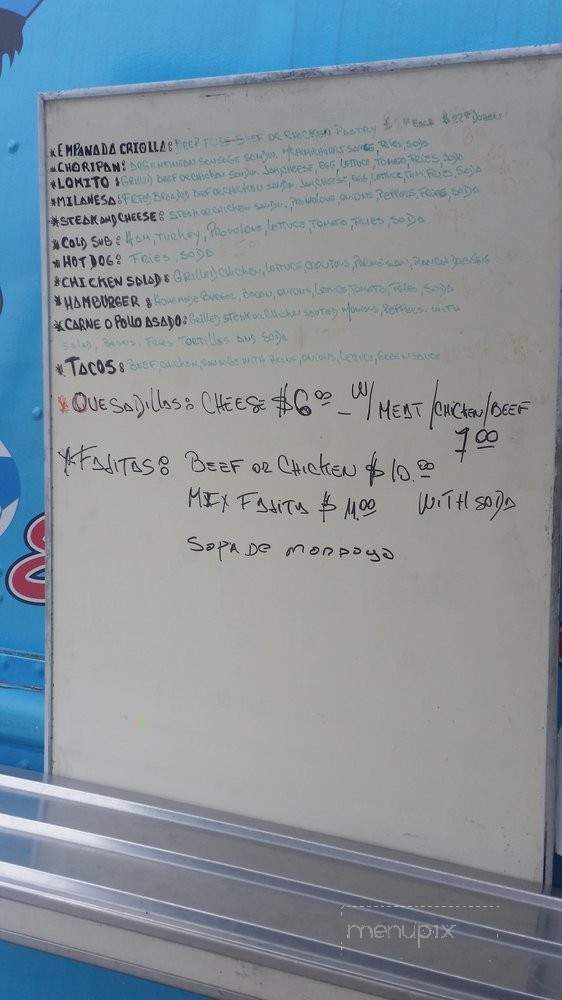 *EMPANADA CRIOLLA: DEEP FRIED BEEF OR CHICKEN PASTRY $ EACH $22.00 DOZEN
*CHORIPAN: ARGENTINIAN SAUSAGE SANDW. FRIES, SODA
*LOMITO: GRILLED BEEF OR CHICKEN SANDW. HAM, CHEESE, EGG, LETTUCE, TOMATO, FRIES, SODA
*MILANESA: FRIED BREADED BEEF OR CHICKEN SANDW. HAM, CHEESE, EGG, LETTUCE, TOM, FRIES, SODA
*STEAK AND CHEESE: STEAK OR CHICKEN SANDW, PROVOLONE, ONIONS, PEPPERS, FRIES, SODA
*COLD SUB: HAM, TURKEY, PROVOLONE, LETTUCE, TOMATO, FRIES, SODA
*HOT DOG: FRIES, SODA
*CHICKEN SALAD: GRILLED CHICKEN, LETTUCE, CROUTONS, PARMESAN, RANCH DRESSING
*HAMBURGER: HOMEMADE BURGER, BACON, ONIONS, LETTUCE, TOMATO, FRIES, SODA
*CARNE O POLLO ASADO: GRILLED STEAK OR CHICKEN SAUTED ONIONS, PEPPERS WITH
SALAD, BEANS, FRIES TORTILLAS AND SODA
*TACOS: BEEF, CHICKEN, WITH BEANS, ONIONS, LETTUCE, GREEN SAUCE
*QUESADILLAS: CHEESE $6.00 - W/ MEAT/CHICKEN/BEEF
7.00
*FAJITAS: BEEF OR CHICKEN $10.00
MIX FAJITA $11.00 WITH SODA
SOPA DE MONDOGO
menupix